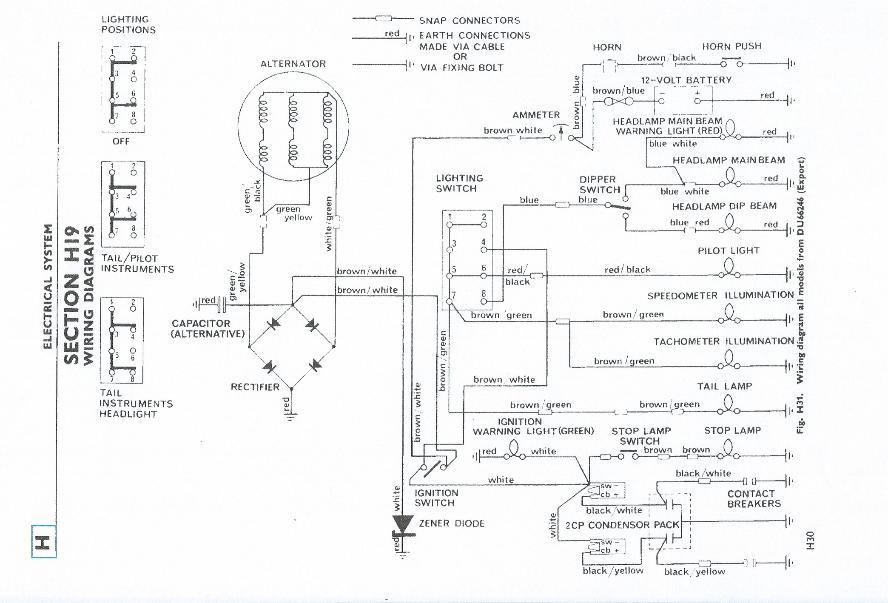 LIGHTING
POSITIONS
1 2
3 4
5 6
7 8
OFF
1 2
3 4
5 6
7 8
TAIL/PILOT
INSTRUMENTS
1 2
3 4
5 6
7 8
TAIL
INSTRUMENTS
HEADLIGHT
ELECTRICAL SYSTEM
SECTION H19
WIRING DIAGRAMS
H
SNAP CONNECTORS
red
EARTH CONNECTIONS
MADE VIA CABLE
OR
VIA FIXING BOLT
ALTERNATOR
green/
black
green
yellow
white/green
green/
yellow
brown/white
brown/white
red
CAPACITOR
(ALTERNATIVE)
RECTIFIER
red
HORN
HORN PUSH
brown/black
12-VOLT BATTERY
brown blue
brown/blue
- +
red
AMMETER
brown white
HEADLAMP MAIN BEAM
WARNING LIGHT (RED)
red
blue white
HEADLAMP MAIN BEAM
LIGHTING
SWITCH
DIPPER
SWITCH
red
blue white
blue
blue
HEADLAMP DIP BEAM
blue red
red
1 2
3 4
5 6
7 8
PILOT LIGHT
red/
black
red/black
red
SPEEDOMETER ILLUMINATION
brown green
brown/green
red
TACHOMETER ILLUMINATION
brown/green
red
brown/green
brown white
TAIL LAMP
brown/green
brown/green
red
brown/white
IGNITION
WARNING LIGHT(GREEN)
red
white
STOP LAMP
SWITCH
STOP LAMP
brown
brown
white
IGNITION
SWITCH
white
ZENER DIODE
red
sw -
cb +
black/white
black/white
CONTACT
BREAKERS
2CP CONDENSOR PACK
white
sw -
cb +
black/yellow
black/yellow
Fig. H31. Wiring diagram all models from DU66246 (Export)
H30